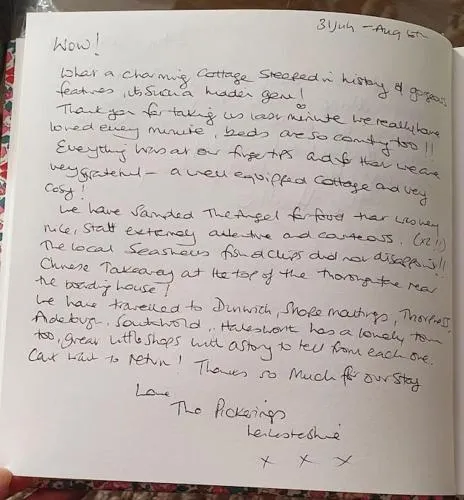 31 July - Aug 6th
Wow!
What a charming Cottage Steeped in history & gorgeous
features, its such a hidden gem!
Thank you for taking us last minute we really have
loved every minute, beds are so comfy too!!
Everything was at our finger tips and for that we are
very grateful - a well equipped cottage and very
cosy!
We have sampled The Angel for food that was very
nice, staff extremely attentive and courteous. (x2!!)
The local Seashells fish & chips did not disappoint!!
Chinese Takeaway at the top of the thoroughfare near
the boarding house!
We have travelled to Dunwich, Snape maltings, Thorpness,
Aldeburgh, Southwold, Halesworth has a lovely town
too, great little shops with a story to tell from each one.
Can't wait to return! Thanks so Much for our stay
Love
The Pickerings
Leicestershire
x x x